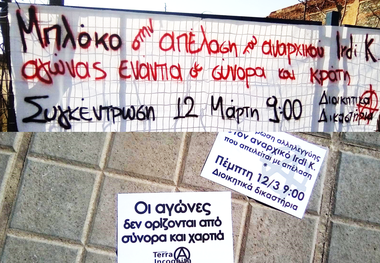 Μπλόκο στην απέλαση του αναρχικού Irdi K.
αγώνας ενάντια σε σύνορα και κράτη
Συγκέντρωση 12 Μάρτη 9:00 Διοικητικά
Δικαστήρια
αλληλεγγύης
στον αναρχικό Irdi K.
που απειλείται με απέλαση
ΠΕΜΠΤΗ 12/3 9:00
Διοικητικά δικαστήρια
Οι αγώνες
δεν ορίζονται από
σύνορα και χαρτιά
Terra
Incognita